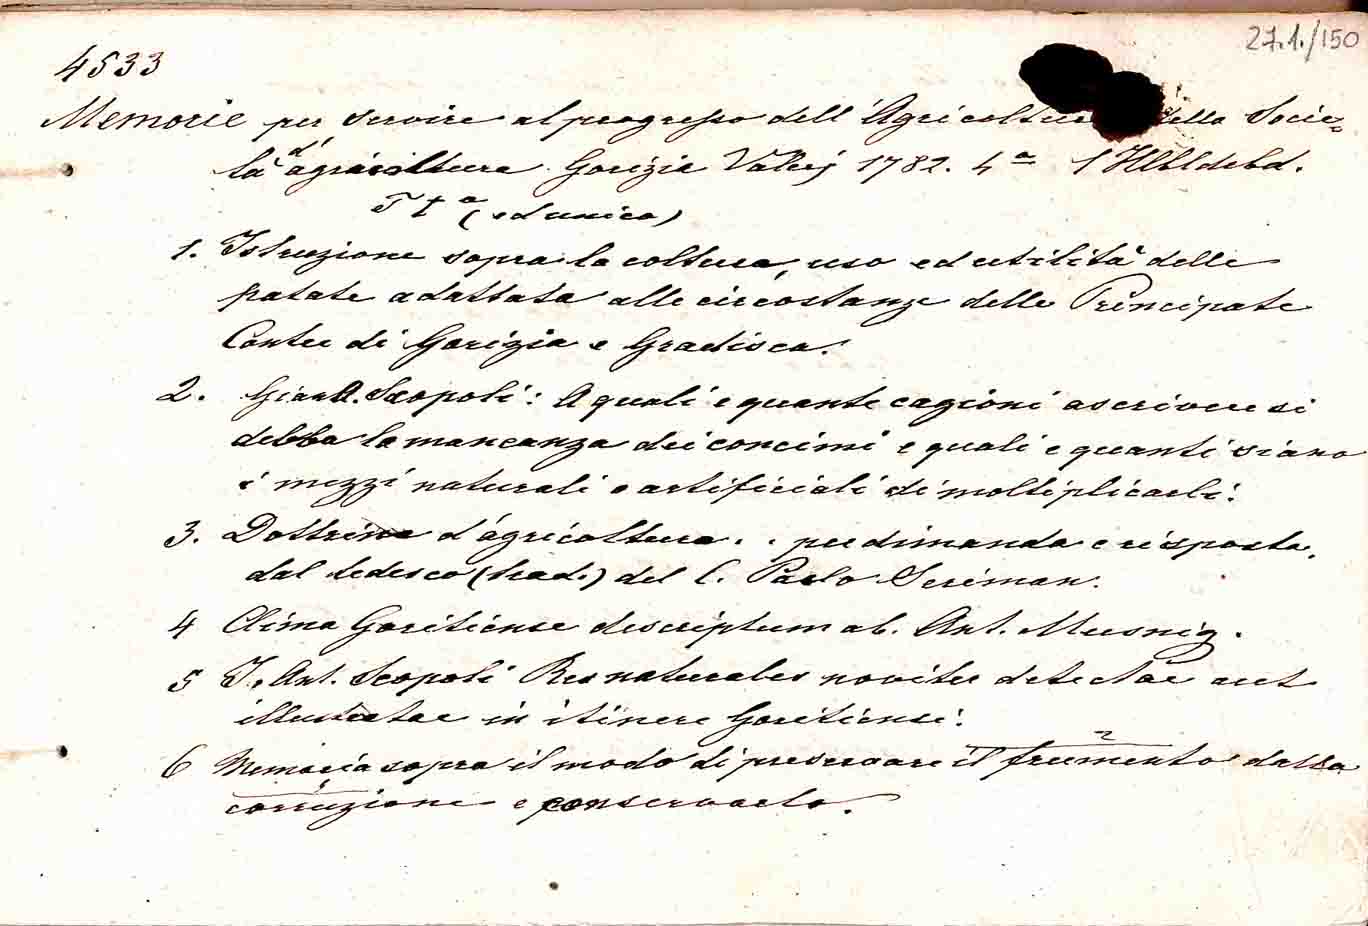 27.1./150
4533
Memorie per servire al progresso dell'Agricoltura della Socie=
tà d'agricoltura Gorizia Valerj 1782. 4°
T I° (ed unico)
1. Istruzione sopra la coltura, uso ed utilità delle
patate adattata alle circostanze delle Principate
Contee di Gorizia e Gradisca.
2. GianA. Scopoli: A quali e quante cagioni ascrivere si
debba la mancanza dei concimi e quali e quanti siano
i mezzi naturali e artificiali di moltiplicarli.
3. Dottrina d'agricoltura . . per dimanda e risposta.
dal tedesco (trad.) del C. Paolo Seriman.
4 Clima Goritiense descriptum ab. Ant. Musnig.
5 I. Ant. Scopoli Res naturales noviter detectae aut
illustratae in itinere Goritiensi.
6 Memoria sopra il modo di preservare il frumento dalla 2
corruzione e conservarlo.